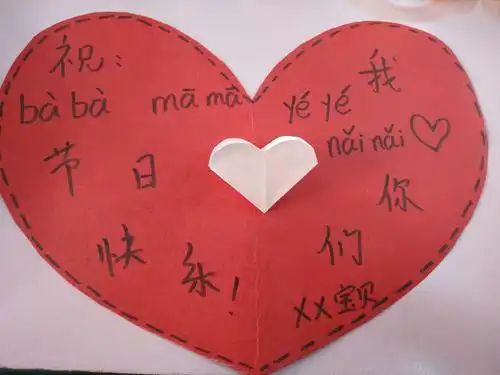 祝:
bà bà mā mā yé yé
nǎi nǎi
节日
快乐!
我
♡
你
们
XX宝贝